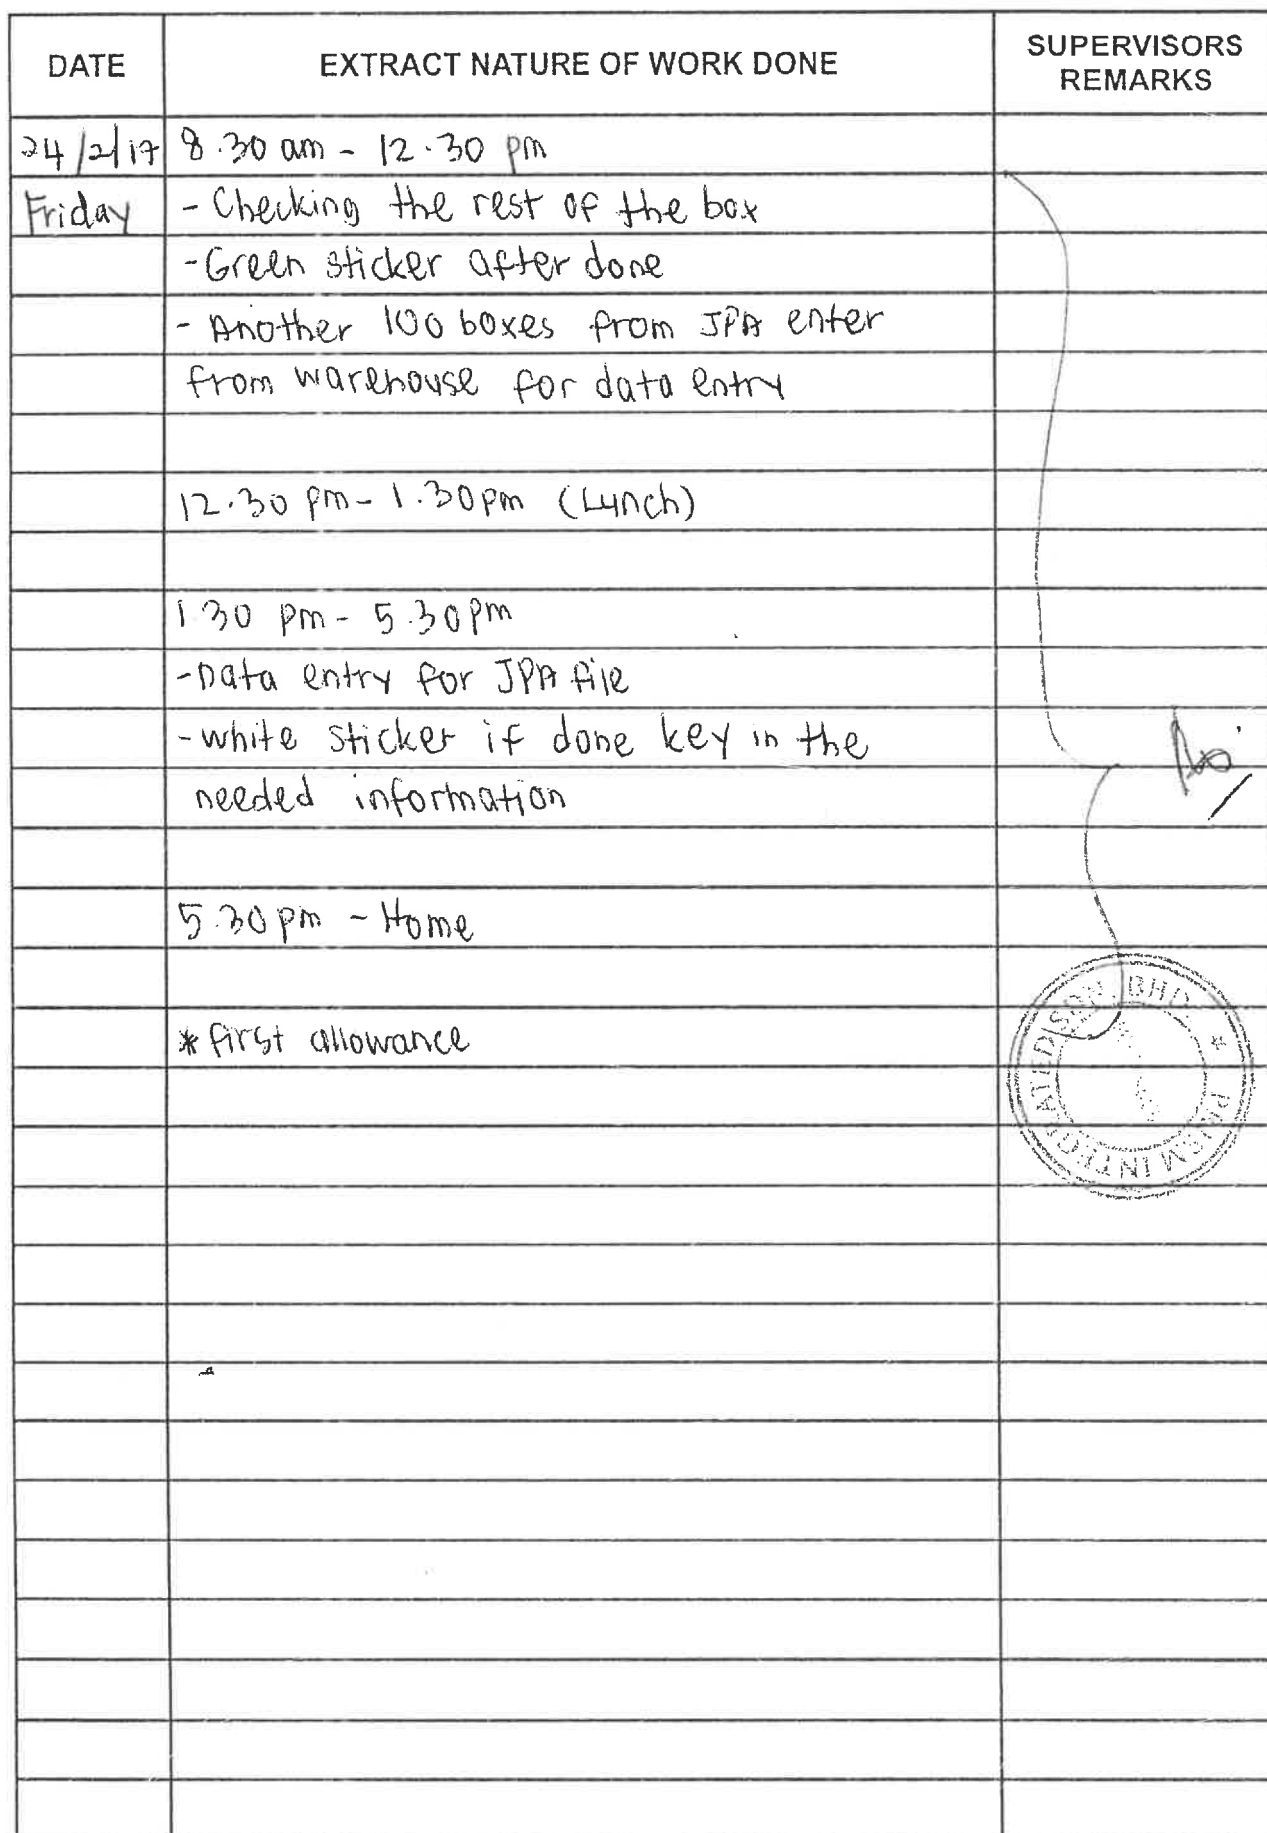 DATE EXTRACT NATURE OF WORK DONE SUPERVISORS REMARKS
24/2/17 8.30 am - 12.30 pm
Friday - Checking the rest of the box
- Green sticker after done
- Another 100 boxes from JPA enter
from warehouse for data entry
12.30 pm - 1.30pm (Lunch)
1.30 pm - 5.30pm
- Data entry for JPA file
- white sticker if done key in the
needed information
5.30pm - Home
* first allowance
PRISM INTEGRATED SDN. BHD. *